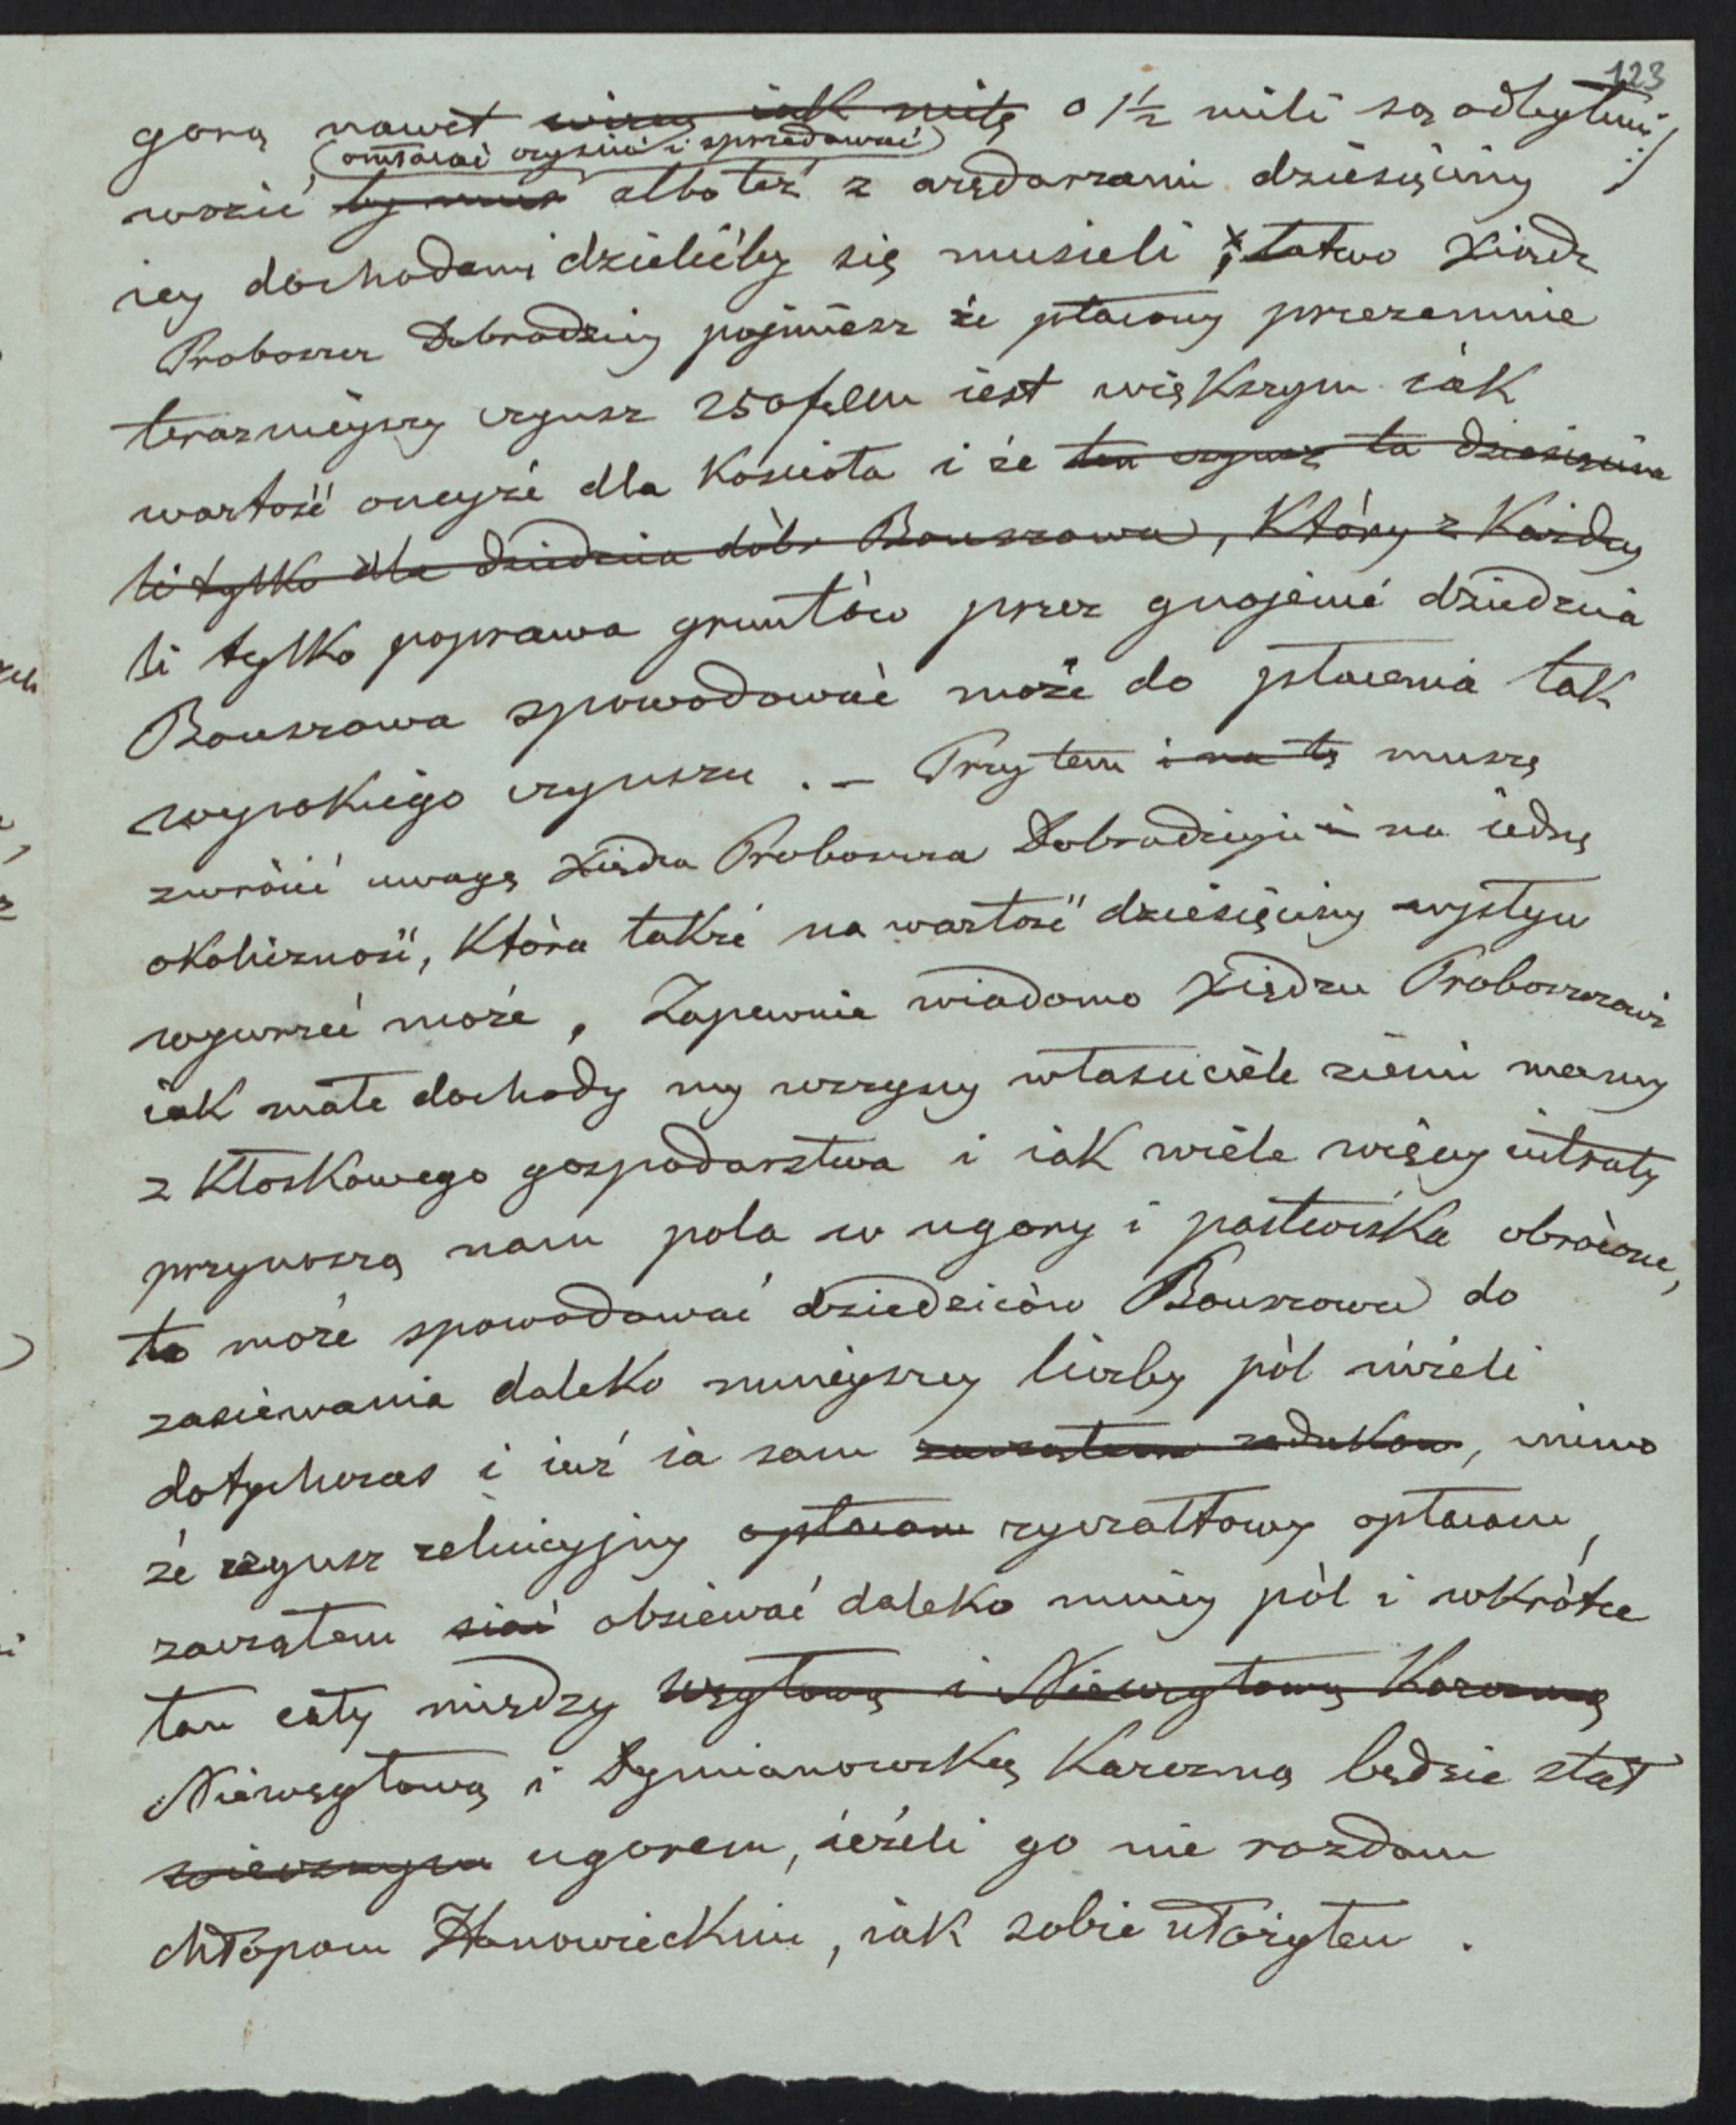 123
gorą nawet więcy iak milę o 1½ mili są odległemi :/
(omłacać czyścić i sprzedawać)
wozić by mus albo też z arędarzami dziesięciny
iey dochodami dzielićby się musieli ; łatwo Xiądz
Proboszcz Dobrodziey pojmiesz że płacony przezemnie
teraznieyszy czynsz 250 f. CM iest większym iak
wartość oneyże dla Kościoła i że ten czynsz ta dziesięcina
li tylko dla dziedzica dóbr Bouszowa, Który z Każdey
li tylko poprawa gruntów przez gnojenie dziedzica
Bouszowa spowodować może do płacenia tak
wysokiego czynszu . — Przytem i na tę muszę
zwrócić uwagę Xiędza Proboszcza Dobrodzieja i na iedną
okoliczność, Która także na wartość dziesięciny wpływ
wywrzeć może , Zapewnie wiadomo Xiędzu Proboszczowi
iak małe dochody my wszyscy właściciele ziemi mamy
z Kłoskowego gospodarstwa i iak wiele więcey intraty
przynoszą nam pola w ugory i pastwiska obrócone,
to może spowodować dziedziców Bouszowa do
zasiewania daleko mnieyszey liczby pól niżeli
dotychczas i iuż ia sam zacząłem redukow , mimo
że czynsz reluicyjny opłacam ryczałtowy opłacam,
zacząłem siać obsiewać daleko mniey pól i wkrótce
łan cały między Węgłową i Niewęgłową Karczmą
Niewęgłową i Dymianowską Karczmą będzie stał
wiecznym ugorem, ieżeli go nie rozdam
chłopom Hanowieckim , iak sobie ułożyłem .